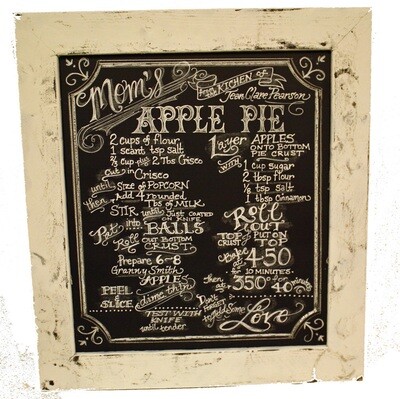 Mom's
FROM THE KITCHEN OF
Jean Clare Pearson
APPLE PIE
2 cups of flour
1 scant tsp salt
3/4 cup plus 2 Tbs Crisco
Cut in Crisco
until Size of POPCORN
then Add 4 rounded
Tbs of MILK
STIR until Just coated
on KNIFE
Put into BALLS
Roll out BOTTOM
CRUST
Prepare 6-8
Granny Smith
APPLES
PEEL & SLICE
dime thin
TEST WITH
KNIFE
until tender
Layer APPLES
ONTO BOTTOM
PIE CRUST
WITH
1 cup sugar
2 tbsp flour
1/8 tsp salt
1 tbsp Cinnamon
Roll
OUT
TOP & PUT ON
CRUST TOP
Bake at 450
for 10 MINUTES
Then at 350° for 40 minutes
Don't Forget
to Add Some
Love